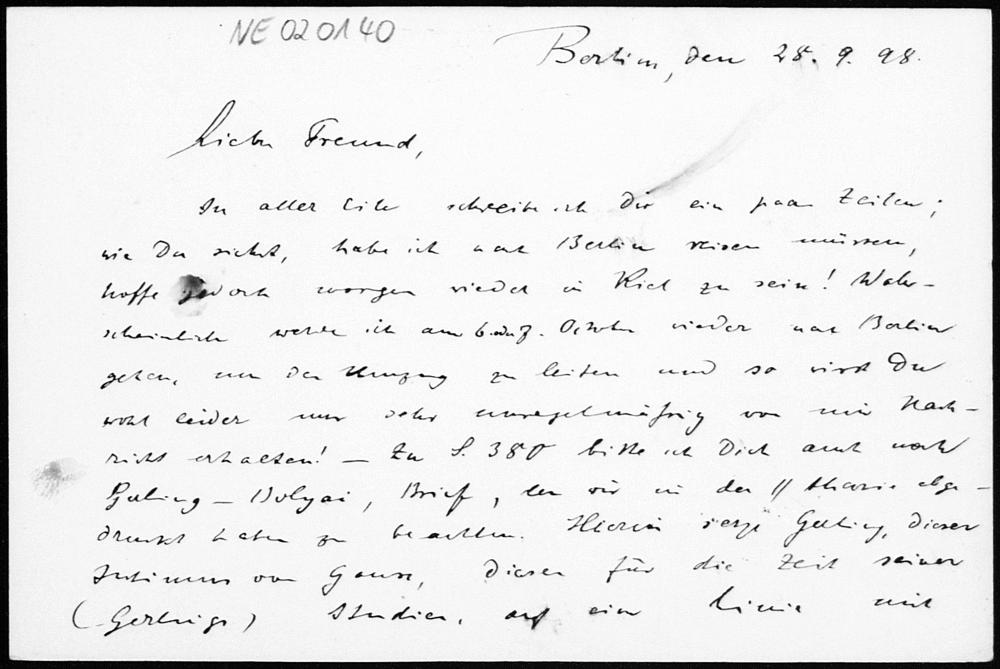 NE 020140
Berlin, den 28. 9. 98.
Lieber Freund,
In aller Eile schreibe ich Dir ein paar Zeilen;
wie Du siehst, habe ich nach Berlin reisen müssen,
hoffe jedoch morgen wieder in Kiel zu sein! Wahr-
scheinlich werde ich am 6. Oktober wieder nach Berlin
gehen, um den Umzug zu leiten und so wirst Du
wohl leider nur sehr unregelmäßig von mir Nach-
richt erhalten! – Zu S. 380 bitte ich Dich auch noch
Gerling – Bolyai, Brief, den wir in der // theorie abge-
druckt haben zu beachten. Hierin setzt Gerling, dieser
Intimus von Gauss, diesen für die Zeit seiner
(Gerlings) Studien, auf eine Linie mit